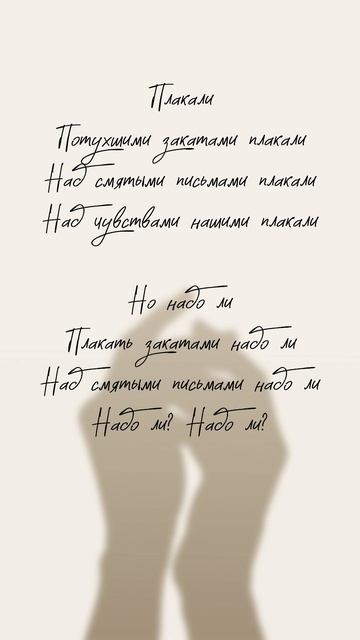 Плакали
Потухшими закатами плакали
Над смятыми письмами плакали
Над чувствами нашими плакали
Но надо ли
Плакать закатами надо ли
Над смятыми письмами надо ли
Надо ли? Надо ли?